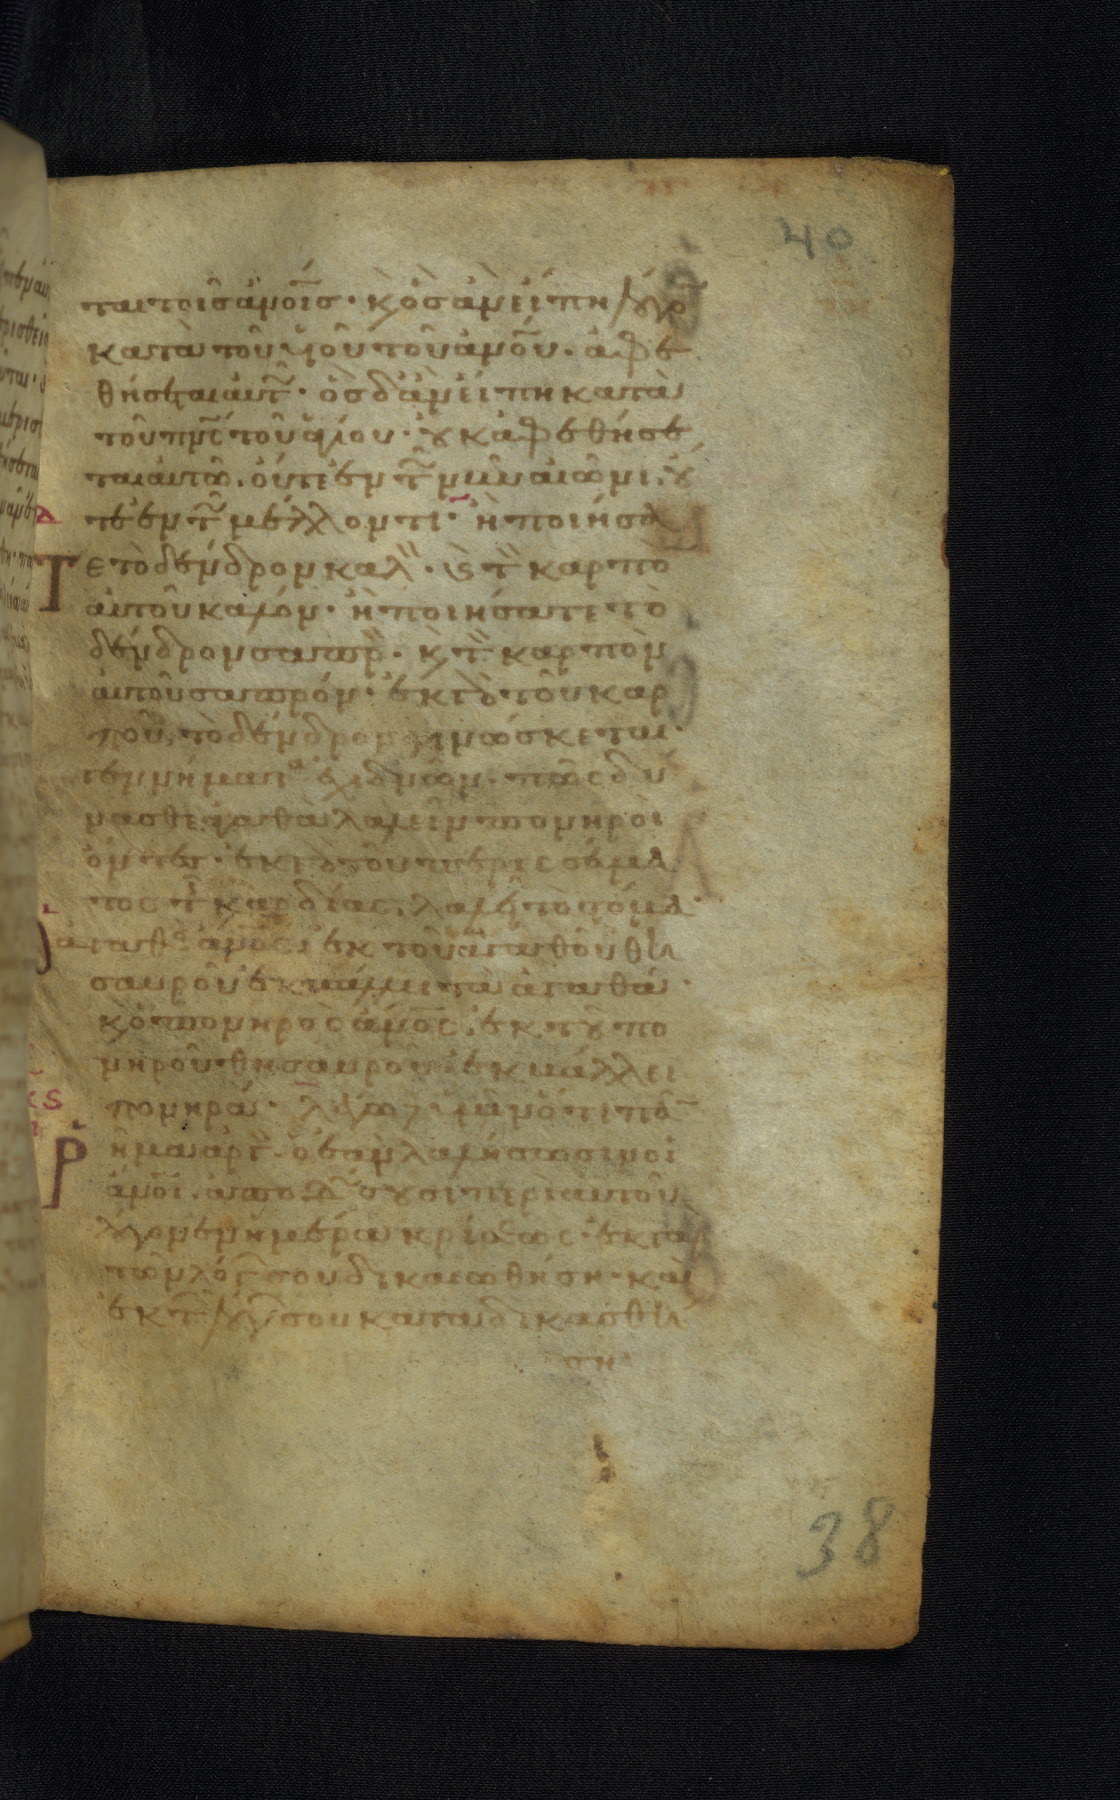 40
ται τοῖς ἀνο̅ι̅ς · κ̀ ὃς ἀν εἴπη λόγο̅
κατὰ τοῦ υἱοῦ τοῦ ἀνο̅υ̅ · ἀφε
θήσεται αὐτ͂ · ὃς δ' ἀν εἴπη κατὰ
τοῦ πν̅ς̅ τοῦ ἁγίου · οὐκ ἀφεθήσε
ται αὐτῶ · οὔτε ἐν τ͂ νῦν αἰῶνι · οὔ
τε ἐν τ͂ μέλλοντι · ἢ ποιήσα
τε τὸ δένδρον καλ̀ · κ̀ τ̀ καρπὸ
αὐτοῦ καλόν · ἢ ποιήσατε τὸ
δένδρον σαπρ̀ · κ̀ τ̀ καρπὸν
αὐτοῦ σαπρόν · ἐκ γ̀ τοῦ καρ
ποῦ, τὸ δένδρον γινώσκεται ·
γεννήματα ἐχιδνῶν · πῶς δύ
νασθε ἀγαθὰ λαλεῖν πονηροὶ
ὄντες · ἐκ γ̀ τοῦ περισσεύμα
τος τ͂ καρδίας, λαλεῖ τὸ στόμα ·
ὁ ἀγαθὸς ἀν̅ο̅ς̅ ἐκ τοῦ ἀγαθοῦ θη
σαυροῦ ἐκβάλλει τὰ ἀγαθά ·
κ̀ ὁ πονηρὸς ἀν̅ο̅ς̅, ἐκ τοῦ πο
νηροῦ θησαυροῦ ἐκβάλλει
πονηρά · λέγω δὲ ὑμῖν ὅτι πᾶ̅
ῥῆμα ἀργ̀ · ὃ ἐὰν λαλήσωσιν οἱ
ἀν̅ο̅ι̅, ἀποδώσουσι περὶ αὐτοῦ
λόγον ἐν ἡμέρα κρίσεως · ἐκ γὰρ
τῶν λόγ͂ σου δικαιωθήση · καὶ
ἐκ τ͂ λόγ͂ σου καταδικασθή
ση ·
38